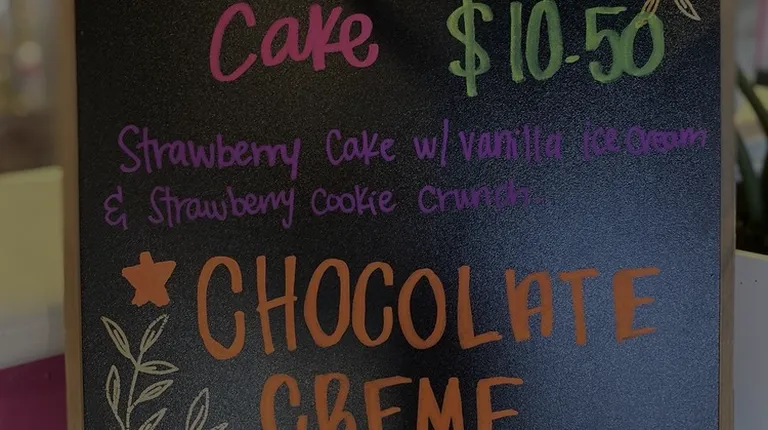 Cake $10.50
Strawberry Cake w/ vanilla ice cream
& Strawberry Cookie Crunch..
CHOCOLATE
CREME